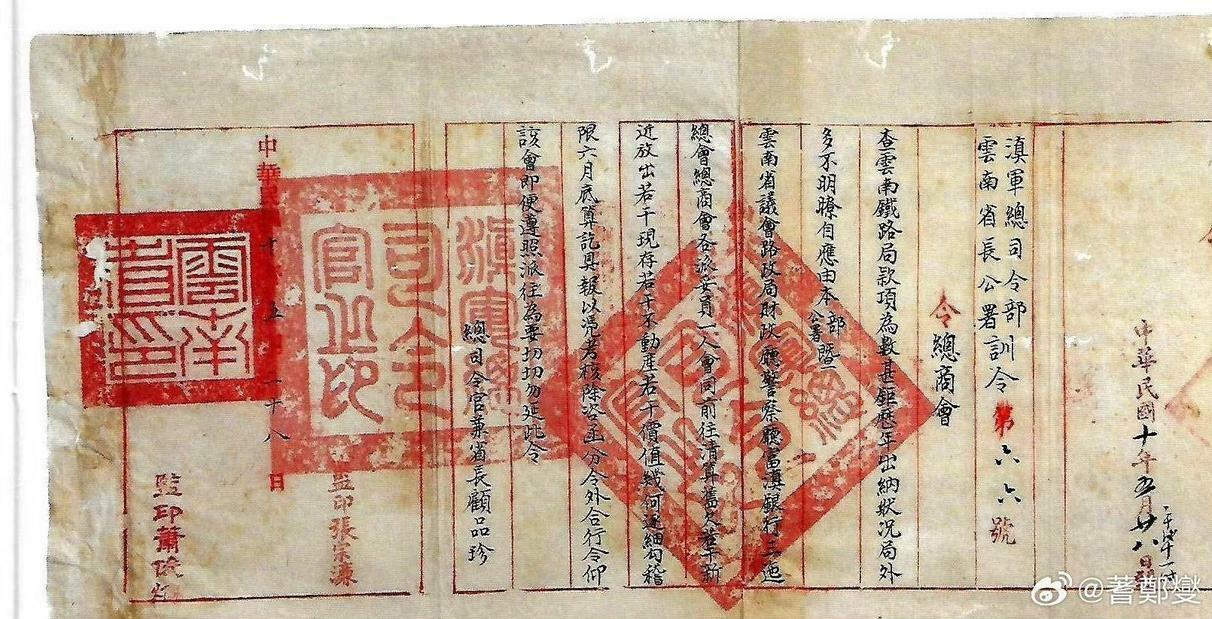 中華民國十年五月廿八日
滇軍總司令部
雲南省長公署訓令第六六號
令總商會
查雲南鐵路局款項為數甚鉅歷年出納狀况局外
多不明瞭自應由本部公署暨
雲南省議會路政局財政廳警察廳富滇銀行三迤
總會總商會各派委員一人會同前往清算舊欠若干新
近放出若干現存若干不動產若干價值幾何逐細勾稽
限六月底算訖具報以凴考核除咨函分令外合行令仰
該會即便遵照派往為要切切勿延此令
總司令官兼省長顧品珍
滇軍總司令官之印
監印張宗濂
中華十五二十八日
雲南省長印
監印蕭
@蓍鄭燮